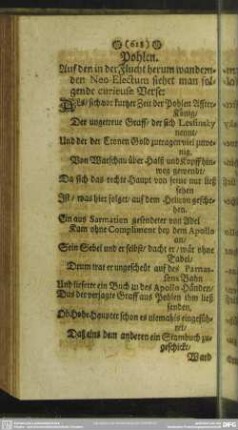 (618)
Pohlen.
Auf den in der Flucht herum wandern-
den Neo-Electum siehet man fol-
gende curieuse Verse:
Als/ sich vor kurtzer Zeit der Pohlen Affter-
König/
Der ungetreue Graff/ der sich Leszinsky
nennt/
Und der der Treuen Gold zutragen viel zu we-
nig.
Von Warschau über Halß und Kopff hin-
weg gewendt;
Da sich das rechte Haupt von ferne nur ließ
sehen
Ist/ was hier folget/ auf dem Helicon gesche-
hen.
Ein aus Sarmatien gesendeter von Adel
Kam ohne Compliment bey dem Apollo
an/
Sein Sebel und er selbst/ dacht er/ wär ohne
Tadel/
Drum trat er ungescheut auf des Parnas-
sens Bahn
Und lieferte ein Buch zu des Apollo Händen/
Das der verjagte Graff aus Pohlen ihm ließ
senden,
Ob Hohe Häupter schon es niemahls eingefüh-
ret/
Daß eins dem anderen ein Stambuch zu-
geschickt/
Ward